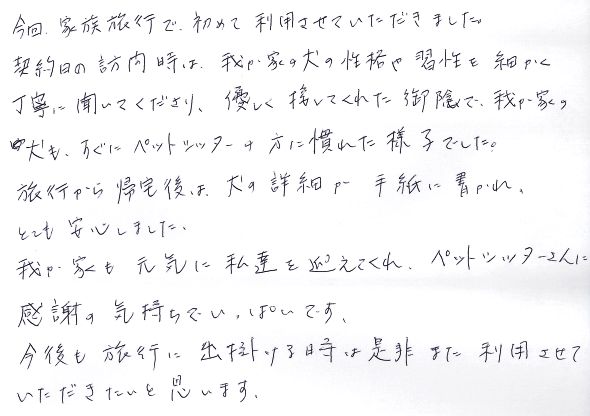 今回、家族旅行で、初めて利用させていただきました。
契約日の訪問時は、我が家の犬の性格や習性を細かく
丁寧に聞いてくださり、優しく接してくれた御陰で、我が家の
犬も、すぐにペットシッターの方に慣れた様子でした。
旅行から帰宅後は、犬の詳細が手紙に書かれ、
とても安心しました、
我が家も元気に私達を迎えてくれ、ペットシッターさんに
感謝の気持ちでいっぱいです、
今後も旅行に出掛ける時は是非また利用させて
いただきたいと思います、